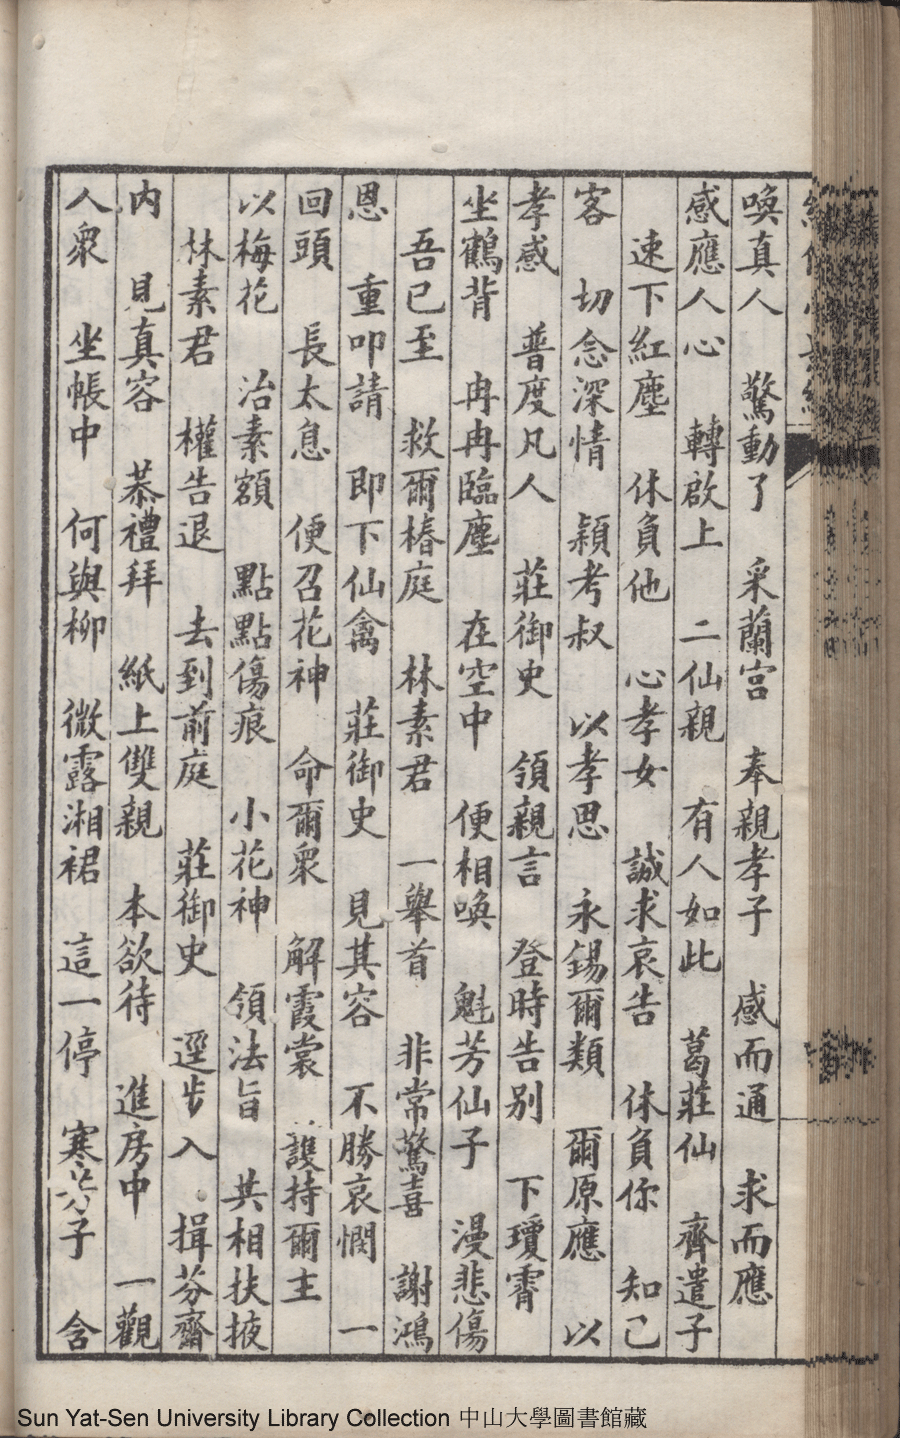 喚真人　驚動了　采蘭宮　奉親孝子　感而通　求而應
感應人心　轉啟上　二仙親　有人如此　葛莊仙　齊遣子
速下紅塵　休負他　心孝女　誠求哀告　休負你　知己
客　切念深情　穎考叔　以孝思　永錫爾類　爾原應　以
孝感　普度凡人　莊御史　領親言　登時告別　下瓊霄
坐鶴背　冉冉臨塵　在空中　便相喚　魁芳仙子　漫悲傷
吾已至　救爾椿庭　林素君　一舉首　非常驚喜　謝鴻
恩　重叩請　即下仙禽　莊御史　見其容　不勝哀憫　一
回頭　長太息　便召花神　命爾衆　解霞裳　護持爾主
以梅花　治素額　點點傷痕　小花神　領法旨　其相扶掖
林素君　權告退　去到前庭　莊御史　逕步入　揖芬齋
内　見真容　恭禮拜　紙上雙親　本欲待　進房中　一觀
人衆　坐帳中　何與柳　微露湘裙　這一停　寒子　含
Sun Yat-Sen University Library Collection 中山大學圖書館藏